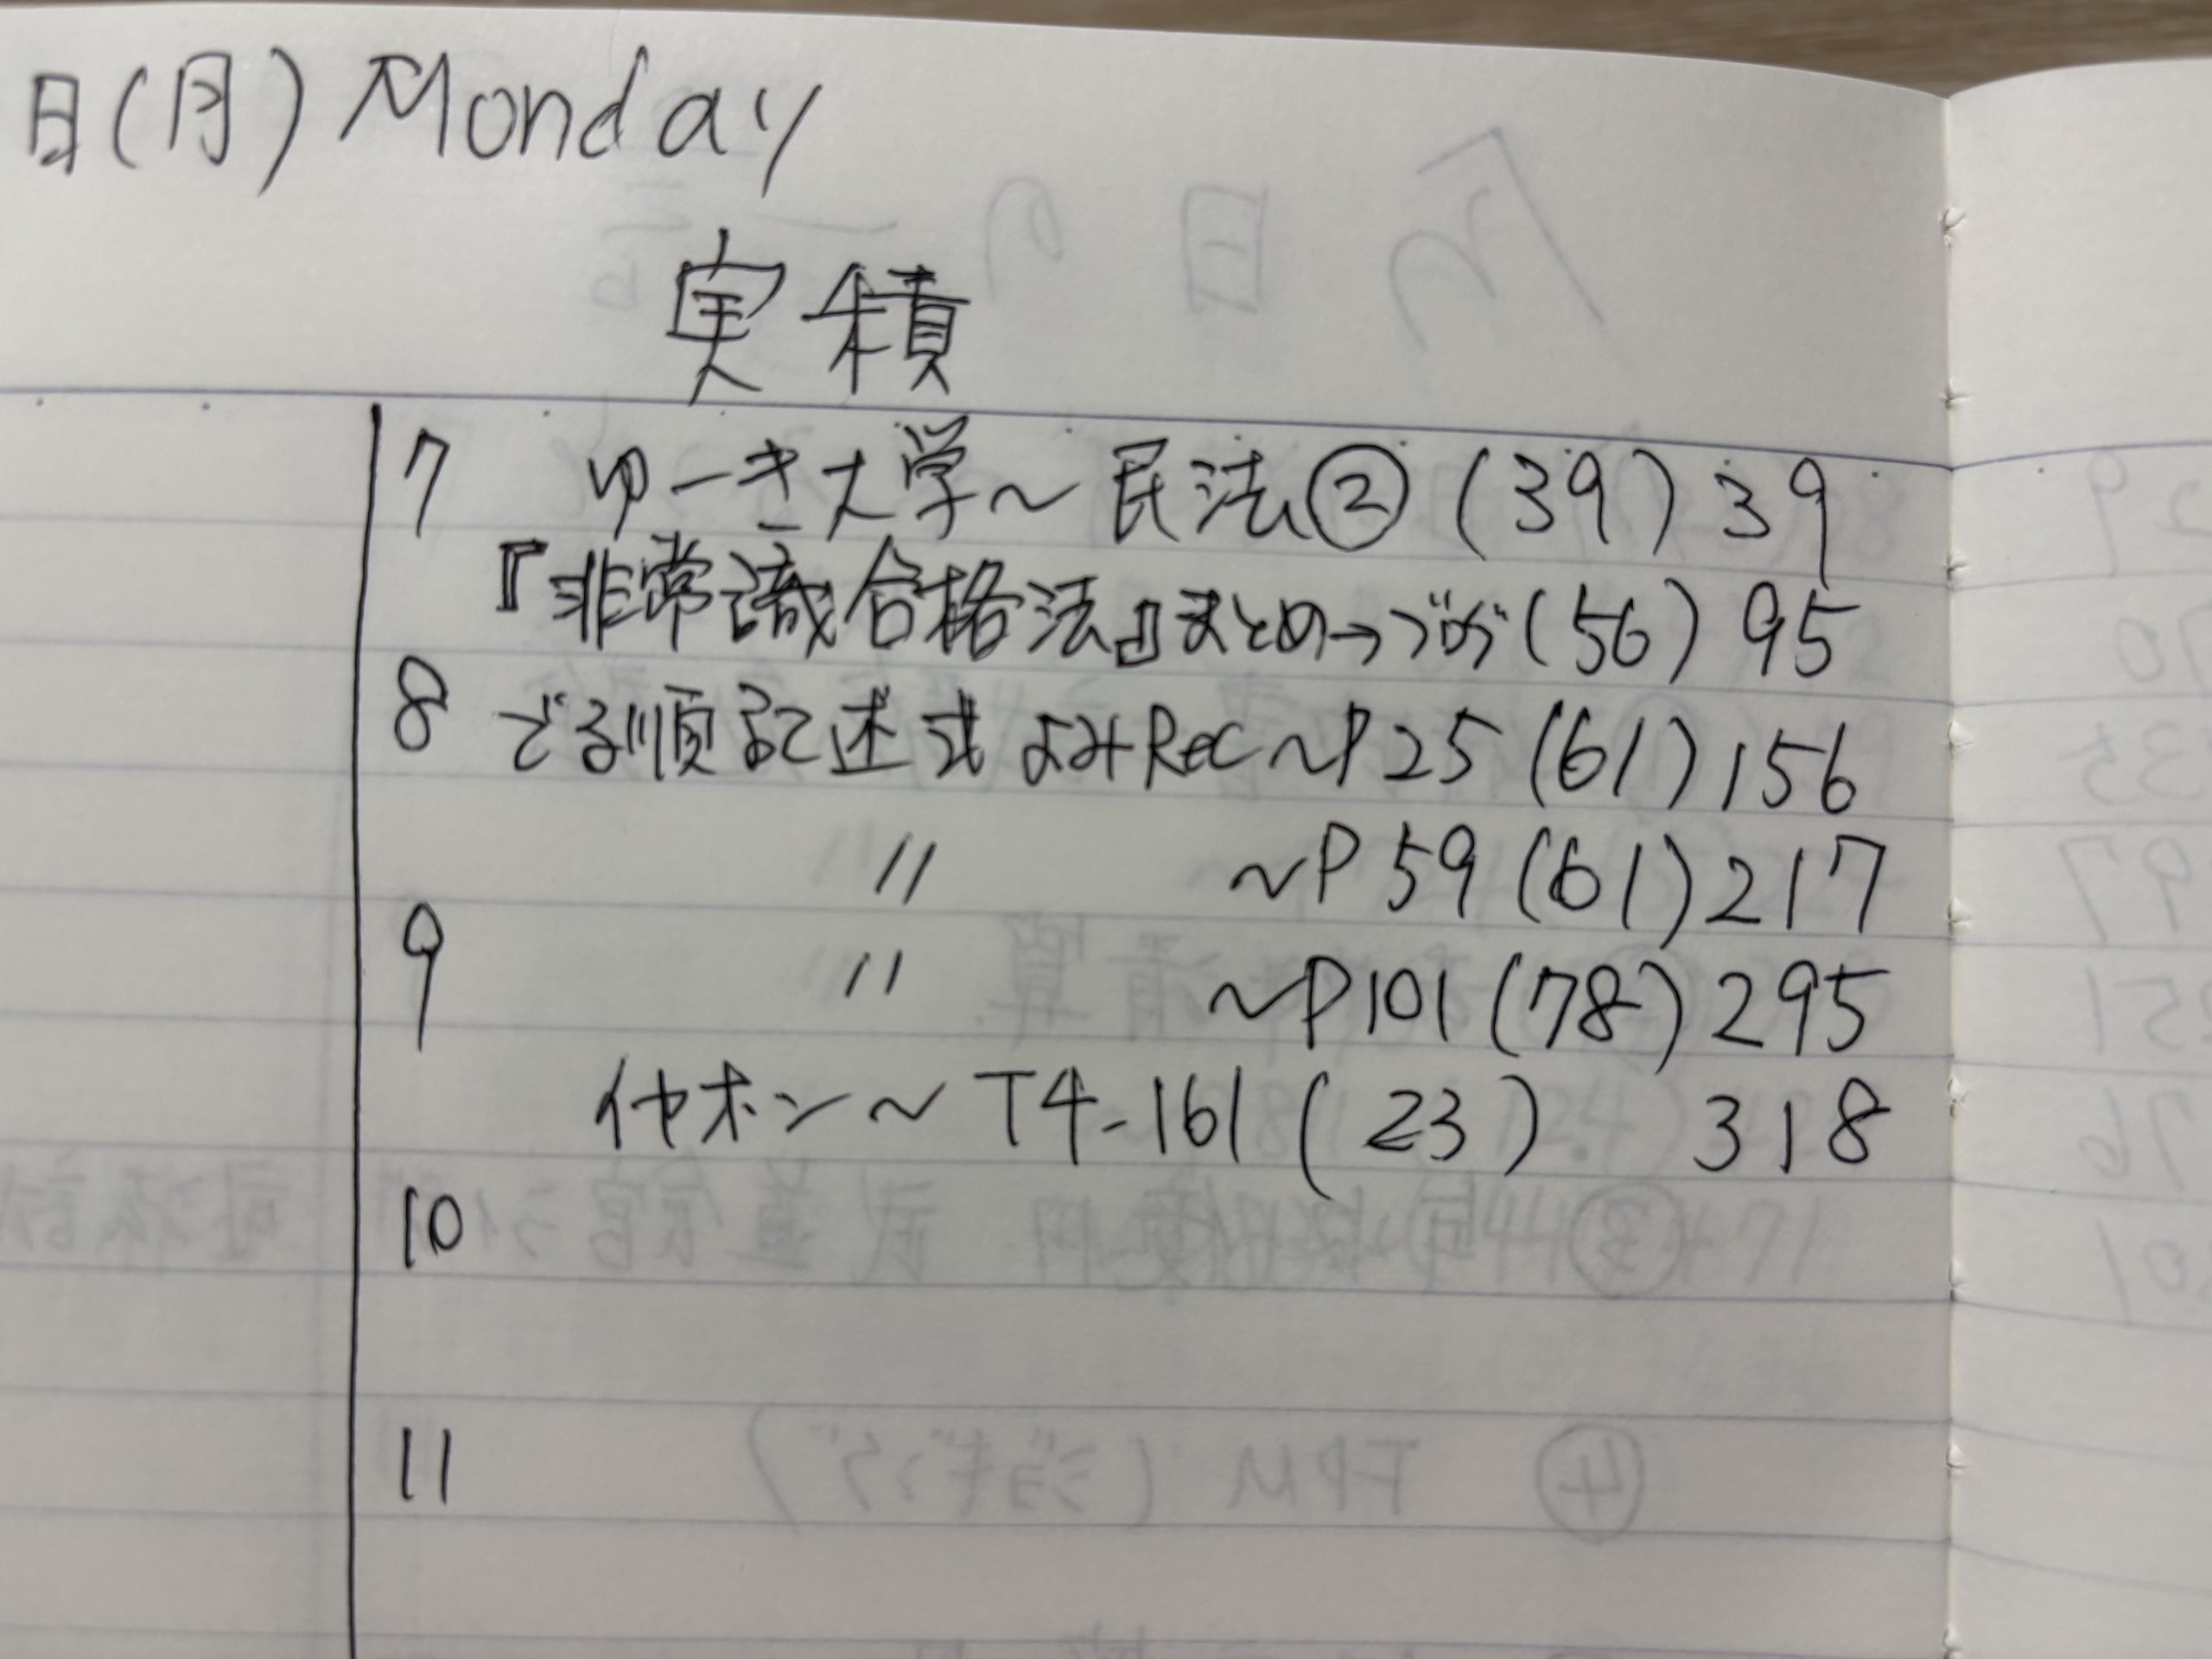 日(月) Monday
実積
7 ゆーき大学〜民法② (39) 39
『非常識合格法』まとめ→ブログ(56) 95
8 でる順記述式よみRec〜P25(61)156
〃 〜P59(61)217
9 〃 〜P101(78)295
イヤホン〜T4-161(23) 318
10
11